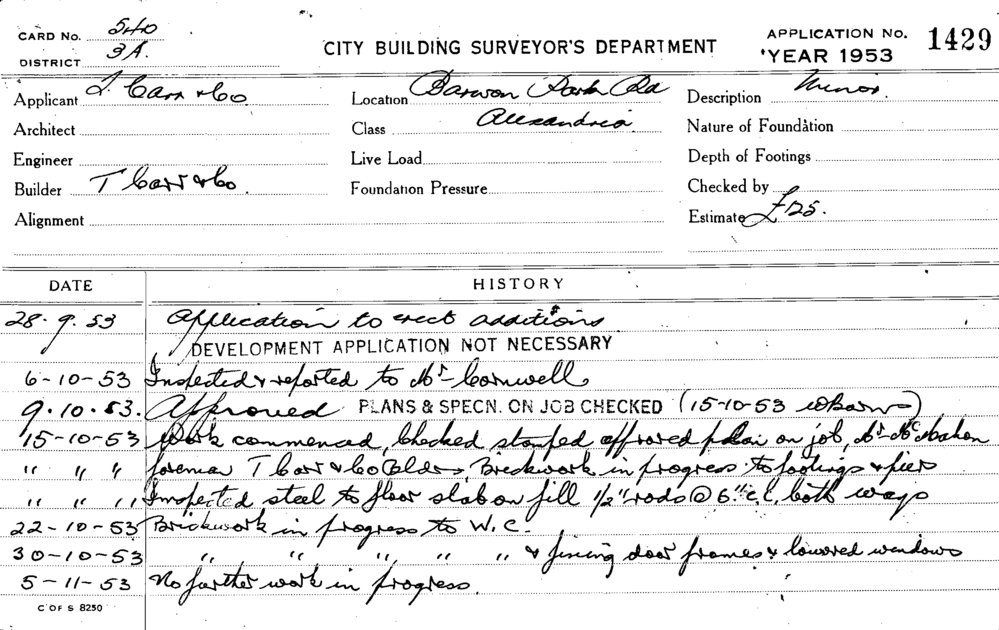 CARD No. 540
DISTRICT 3A.
CITY BUILDING SURVEYOR'S DEPARTMENT
APPLICATION No. 1429
YEAR 1953
Applicant T. Carr & Co
Location Barwon Park Rd
Description Minor.
Architect
Class Alexandria.
Nature of Foundation
Engineer
Live Load
Depth of Footings
Builder T Carr & Co.
Foundation Pressure
Checked by
Alignment
Estimate £125.
DATE HISTORY
28.9.53 Application to erect additions
DEVELOPMENT APPLICATION NOT NECESSARY
6-10-53 Inspected & reported to Mr Cornwell
9.10.53. Approved PLANS & SPECN. ON JOB CHECKED (15-10-53)
15-10-53 Work commenced, Checked stamped approved plan on job, Mr McMahon
" " " foreman T Carr & Co Bldrs, Brickwork in progress to footings & piers
" " " Inspected steel to floor slab on fill 1/2" rods @ 6" c.c. both ways
22-10-53 Brickwork in progress to W.C.
30-10-53 " " " " " & fixing door frames & louvred windows
5-11-53 No further work in progress.
C OF S 8250